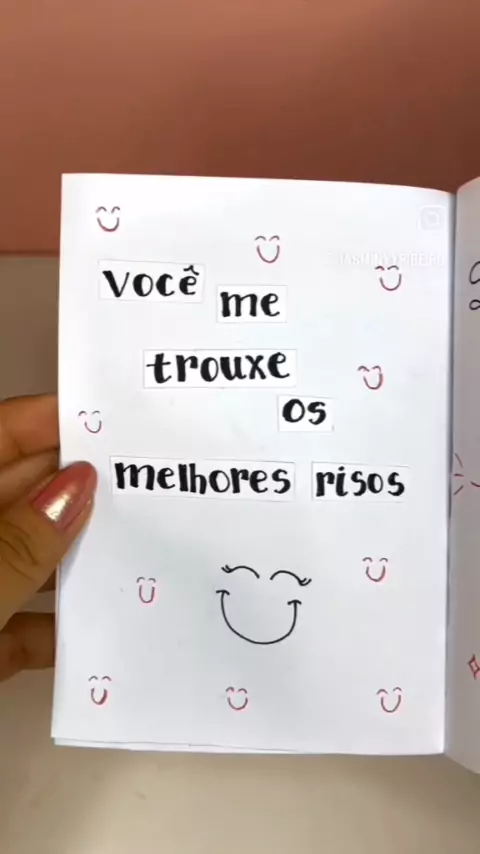 Você me
trouxe
os
melhores risos